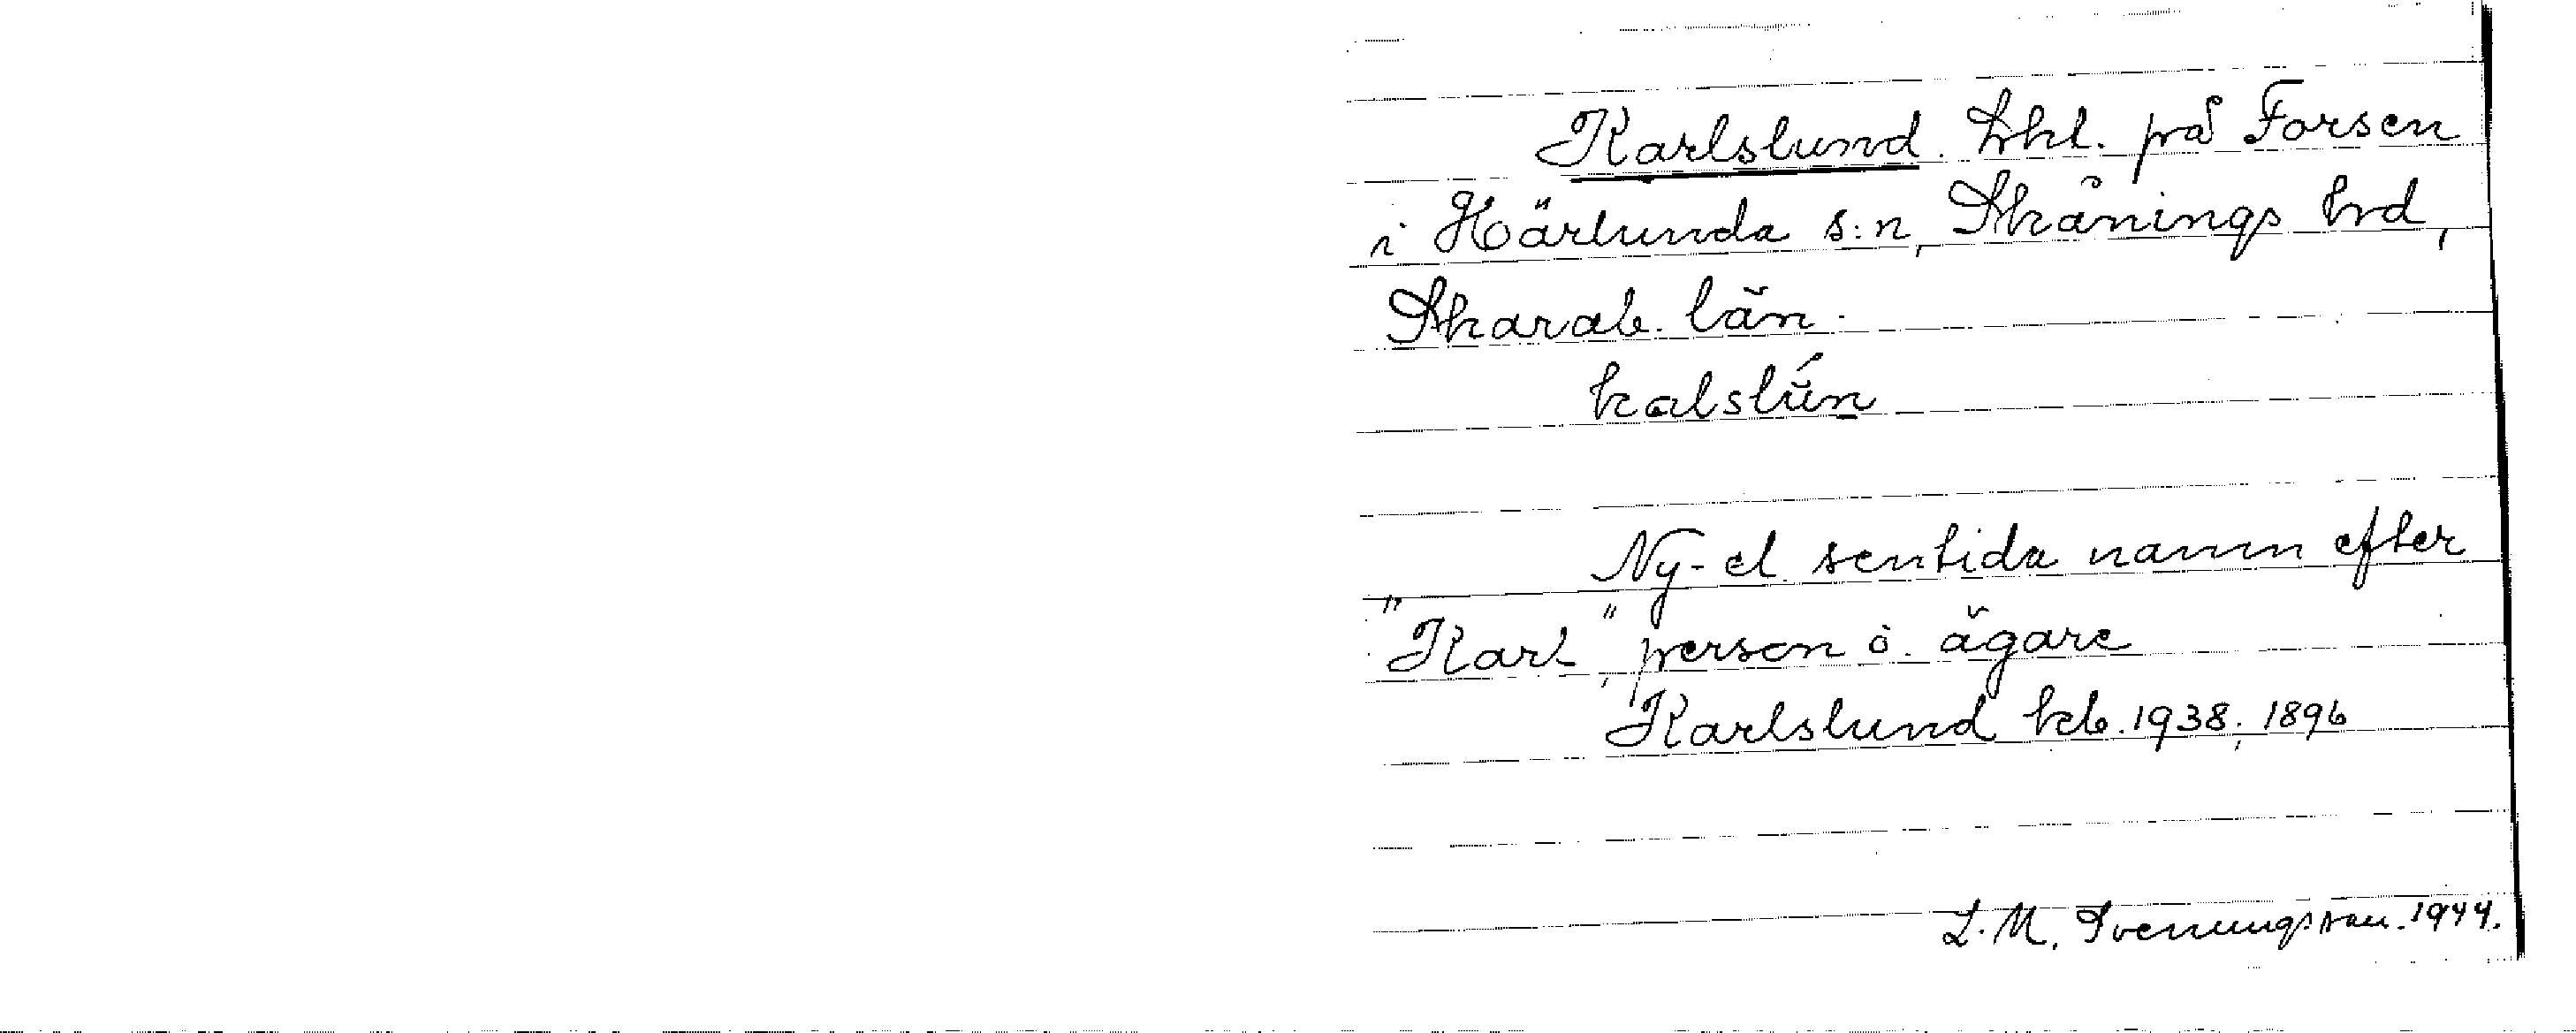 Karlslund. Lhl. på Forsen
i Härlunda s:n, Skånings hrd,
Skarab. län.
kalslún
Ny- el. sentida namn efter
"Karl", person o. ägare
Karlslund kb. 1938; 1896
L. M. Svenungsson. 1944.